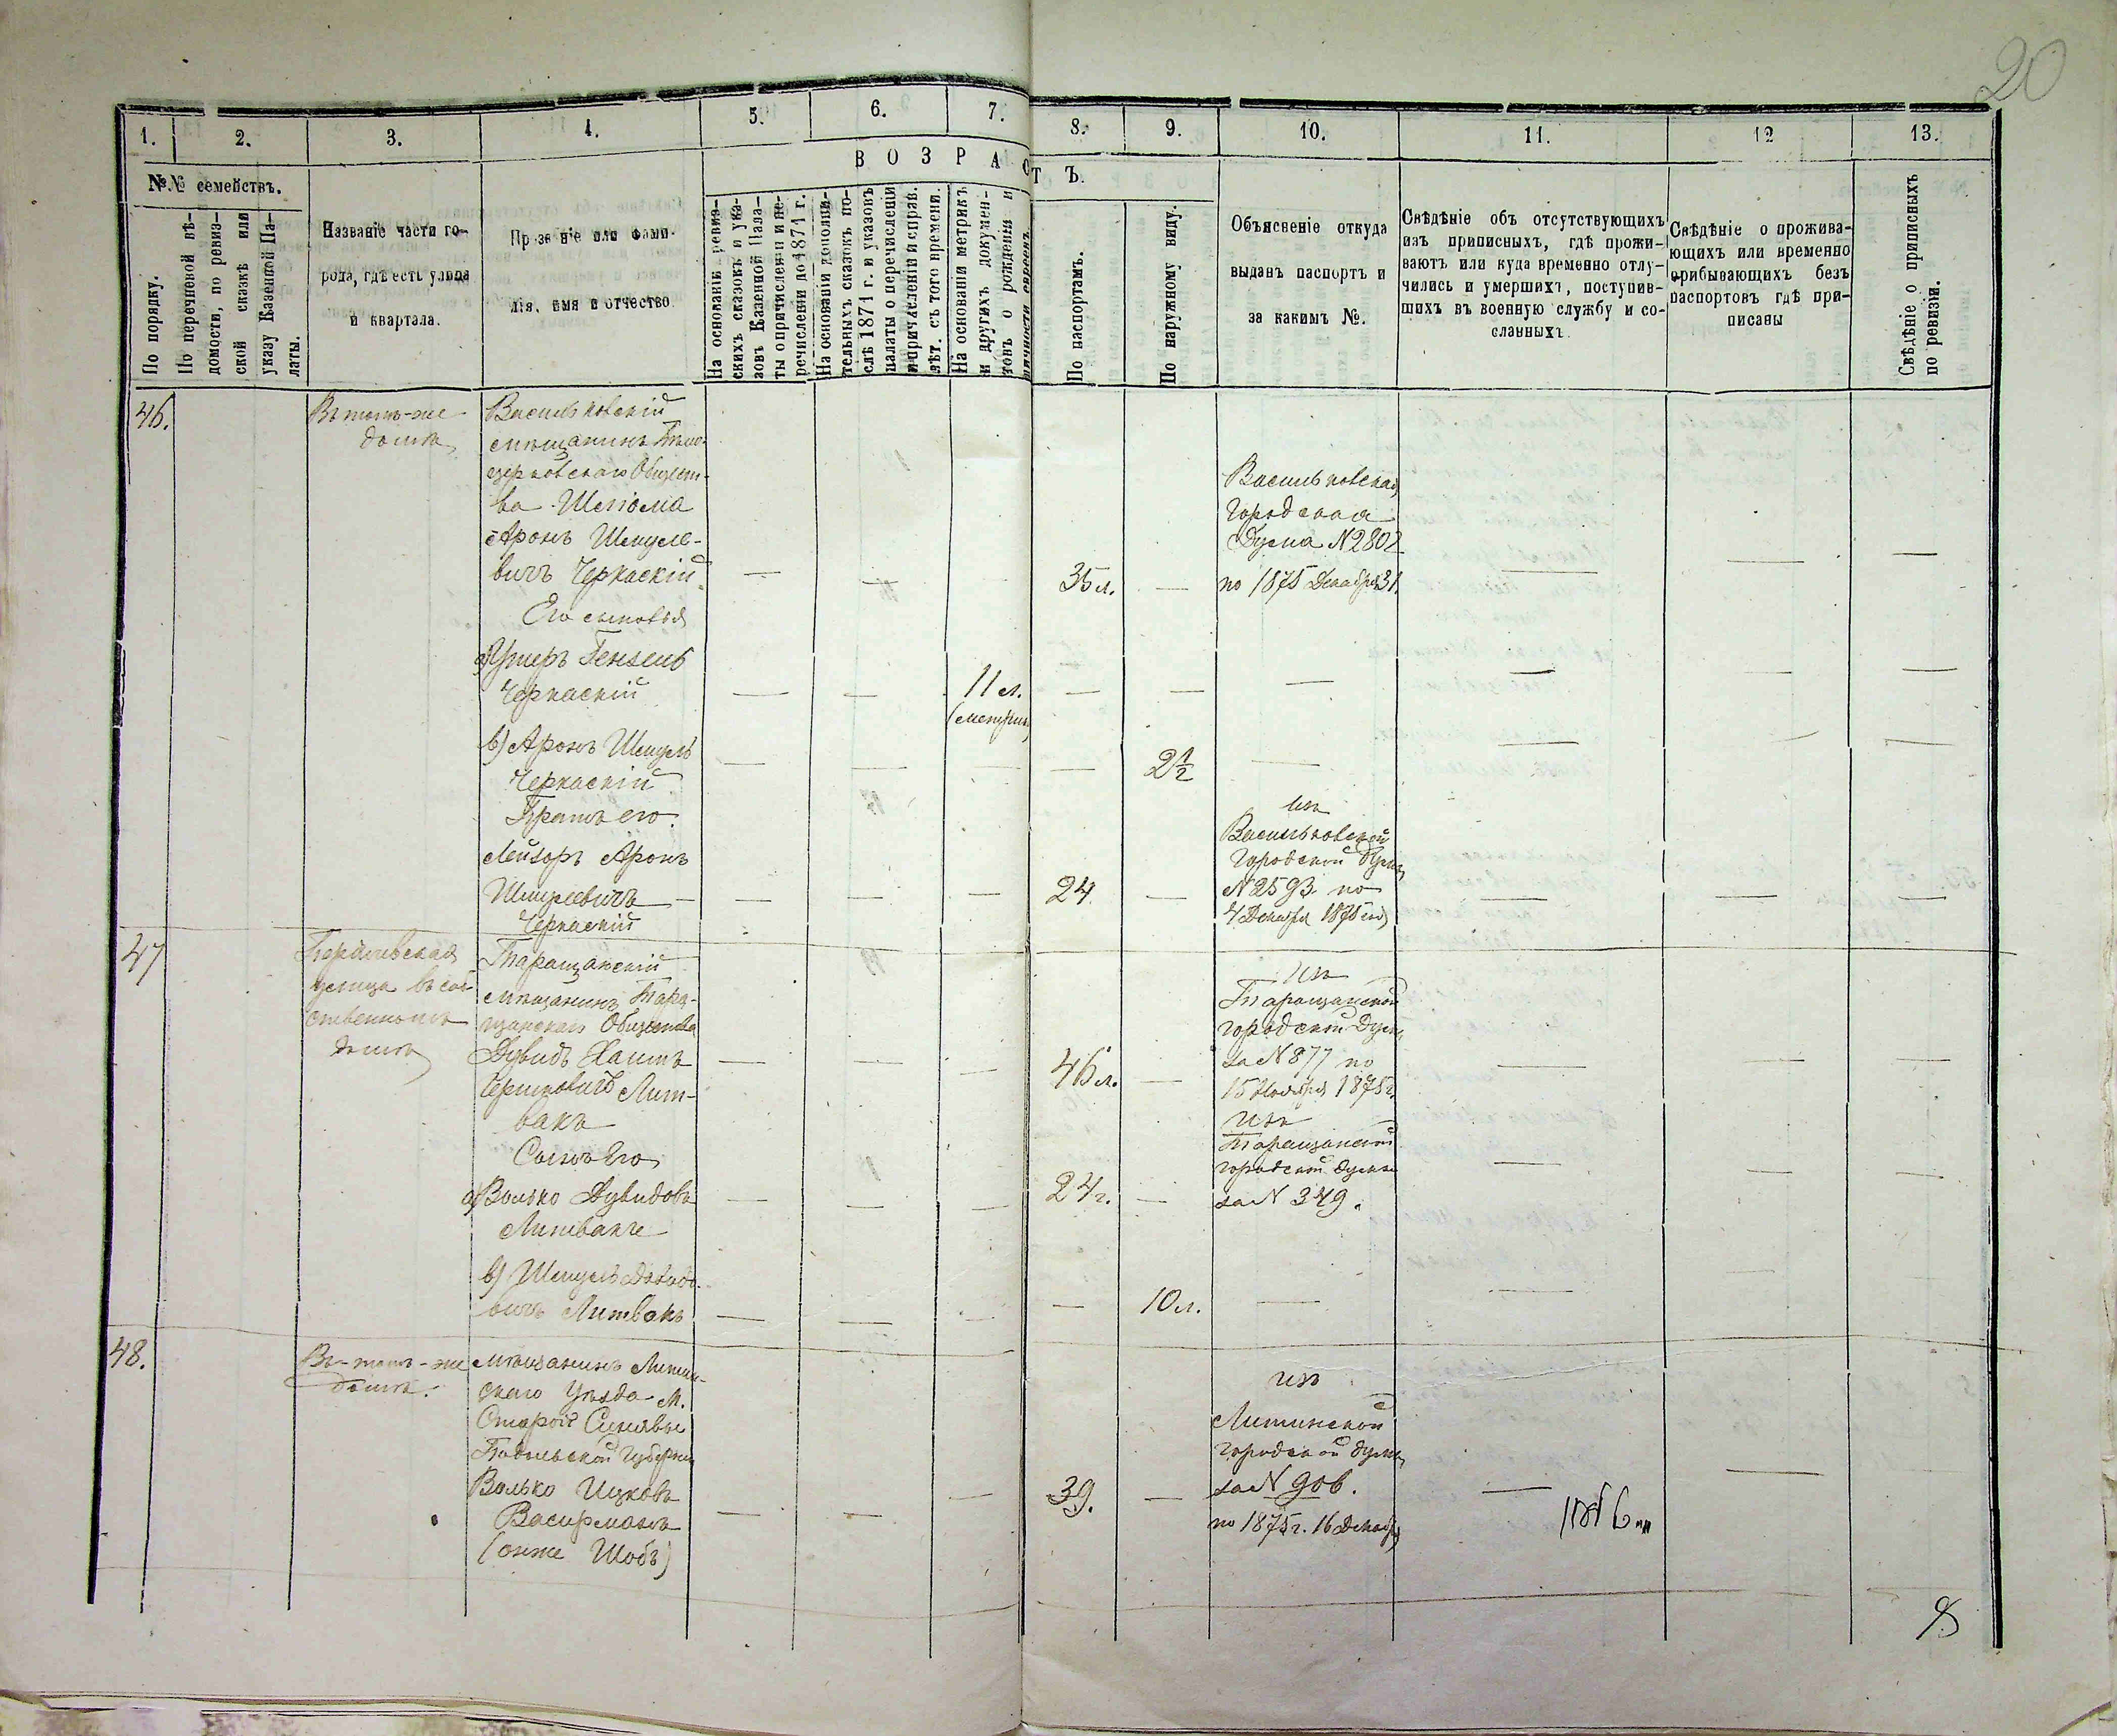 20
1. 2. 3. 4. 5. 6. 7. 8. 9. 10. 11. 12 13.
№№ семействъ.
По порядку.
По перечневой вѣ-
домости, по ревиз-
ской сказкѣ или
указу Казенной Па-
латы.
Названіе части го-
рода, гдѣ есть улица
и квартала.
Прозваніе или фами-
лія, имя и отчество
ВОЗРАСТЪ.
На основаніи ревиз-
скихъ сказокъ и ука-
зовъ Казенной Пала-
ты о причисленіи и пе-
речисленіи до 1871 г.
На основаніи дополни-
тельныхъ сказокъ по-
слѣ 1871 г. и указовъ
палаты о перечисленіи
и причисленіи и справ.
лѣт. съ того времени.
На основаніи метрикъ
и другихъ докумен-
товъ о рожденіи и
По паспортамъ.
По наружному виду.
Объясненіе откуда
выданъ паспортъ и
за какимъ №.
Свѣдѣніе объ отсутствующихъ
изъ приписныхъ, гдѣ прожи-
ваютъ или куда временно отлу-
чились и умершихъ, поступив-
шихъ въ военную службу и со-
сланныхъ.
Свѣдѣніе о прожива-
ющихъ или временно
прибывающихъ безъ
паспортовъ гдѣ при-
писаны
Свѣдѣніе о приписныхъ
по ревизи.
46.
Въ томъ-же
домѣ
Васильковскій
мѣщанинъ Бѣло-
церковскаго Общест-
ва Шлiома
Аронъ Шмуле-
вичъ Черкаскій
35 л.
Васильковская
Городская
Дума N 2802
по 1875 Декабря 31
Его сыновья
а) Ушеръ Гензель
Черкаскій
11 л.
(метрик)
в) Аронъ Шмуль
Черкаскій
2½
Братъ его.
Лейзоръ Аронъ
Шмулевичъ
Черкаскій
24
изъ
Васильковской
Городской Думы
N 2593 по
4 Декабря 1875 год
47
улица въ соб-
ственномъ
домѣ
Таращанскій
мѣщанинъ Тара-
щанскаго Общества
Дувидъ Хаимъ
Гершковичъ Лит-
вакъ
46 л.
Изъ
Таращанской
городской Думы
за N 877 по
15 Ноября 1875 г.
Сынъ Его
а) Волько Дувидовъ
Литваче
24 г.
изъ
Таращанской
городской думы
за N 349.
в) Шмуль Давидо-
вичъ Литвакъ
10 л.
48.
Въ-томъ-же
домѣ.
мѣщанинъ Литин-
скаго Уѣзда М.
Старой Синявы
Подольской Губерніи
Волько Ицковъ
Васирманъ
(онже Шобъ)
39.
изъ
Литинской
городской думы
за N 906.
по 1875 г. 16 Декабр
8